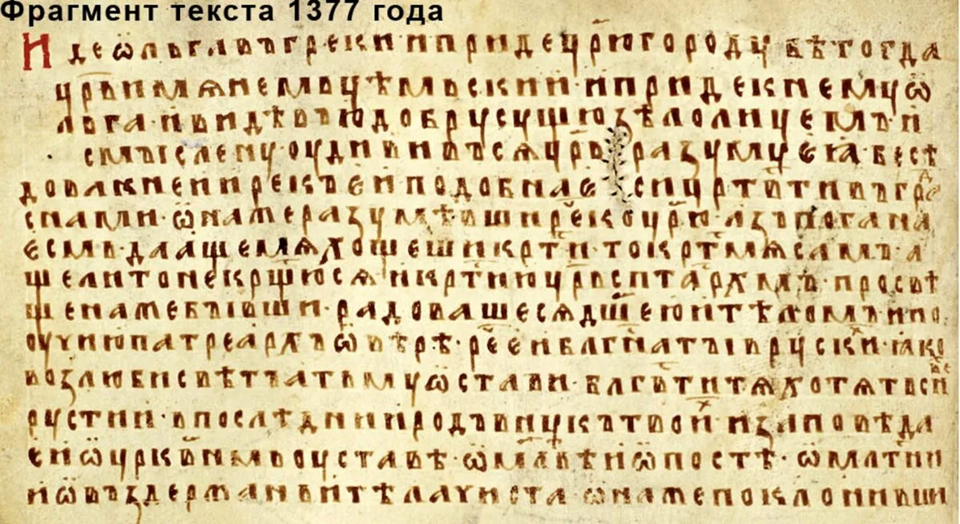 Фрагмент текста 1377 года
Иде ѡльга въ греки и приде цр҃югороду бѣ тогда
цр҃ь имѧнемь цѣмьскии и приде к нему ѡ
льга и видѣвъ ю добру сущю зѣло лицемъ и
смыслену оудививъсѧ цр҃ь разуму еӕ бесѣ
дова к неи и рекъ еи подобна еси цр҃тв҃ти въ гра
с нами ѡна же разумѣвши ре҃к ко цр҃ю азъ погана
есмь да аще мѧ хощеши крт҃и то крт҃и мѧ самъ а
ще ли то не крщ҃юсѧ и крт҃и ю цр҃ь с патрархмъ просвѣ
щена же бывши радовашесѧ дш҃ею и тѣломъ и по
оучи ю патреархъ ѡ вѣрѣ ре҃ч еи блг҃на ты в руски ӕко
возлюби свѣтъ а тьму ѡстави блг҃вти тѧ хотѧть си
рустии в послѣднии родъ внукъ твоих и заповѣда
еи ѡ црк҃внмь оуставѣ ѡ мл҃твѣ и ѡ постѣ ѡ млт҃ни
и ѡ въздержаньи тѣла чиста ѡна же поклонивши